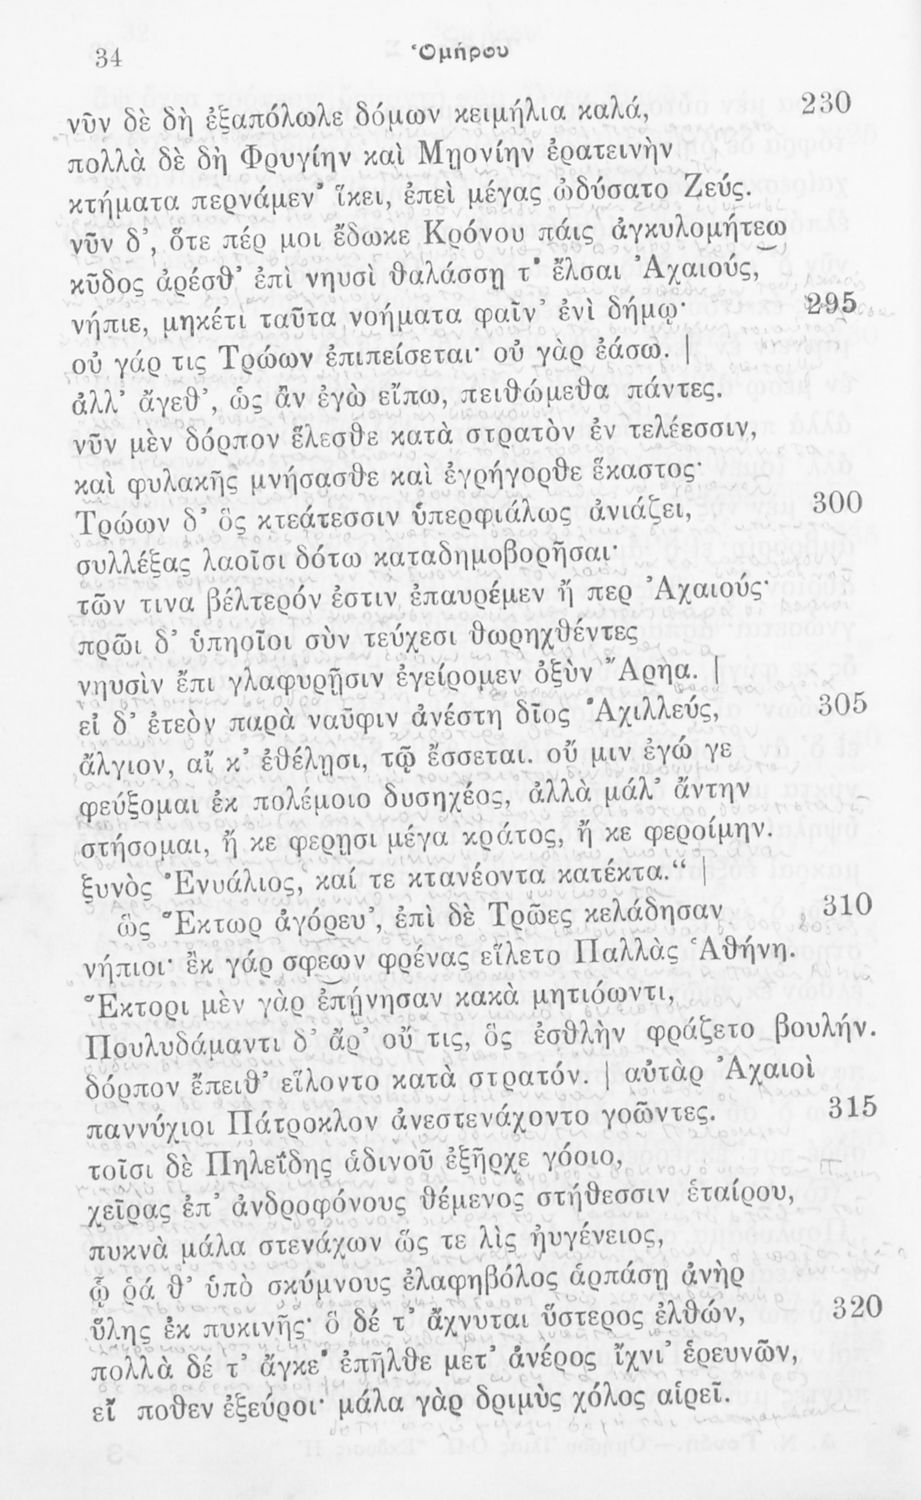 34
Ὁμήρου
νῦν δὲ δὴ ἐξαπόλωλε δόμων κειμήλια καλά, 230
πολλὰ δὲ δὴ Φρυγίην καὶ Μῃονίην ἐρατεινὴν
κτήματα περνάμεν' ἵκει, ἐπεὶ μέγας ὠδύσατο Ζεύς.
νῦν δ', ὅτε πέρ μοι ἔδωκε Κρόνου πάις ἀγκυλομήτεω
κῦδος ἀρέσθ' ἐπὶ νηυσὶ θαλάσσῃ τ' ἔλσαι Ἀχαιούς,
νήπιε, μηκέτι ταῦτα νοήματα φαῖν' ἐνὶ δήμῳ· 295
οὐ γάρ τις Τρώων ἐπιπείσεται· οὐ γὰρ ἐάσω. |
ἀλλ' ἄγεθ', ὡς ἂν ἐγὼ εἴπω, πειθώμεθα πάντες.
νῦν μὲν δόρπον ἕλεσθε κατὰ στρατὸν ἐν τελέεσσιν,
καὶ φυλακῆς μνήσασθε καὶ ἐγρήγορθε ἕκαστος·
Τρώων δ' ὃς κτεάτεσσιν ὑπερφιάλως ἀνιάζει, 300
συλλέξας λαοῖσι δότω καταδημοβορῆσαι·
τῶν τινα βέλτερόν ἐστιν ἐπαυρέμεν ἤ περ Ἀχαιούς·
πρῶι δ' ὑπηοῖοι σὺν τεύχεσι θωρηχθέντες
νηυσὶν ἔπι γλαφυρῇσιν ἐγείρομεν ὀξὺν Ἄρηα. |
εἰ δ' ἐτεὸν παρὰ ναῦφιν ἀνέστη δῖος Ἀχιλλεύς, 305
ἄλγιον, αἴ κ' ἐθέλῃσι, τῷ ἔσσεται. οὔ μιν ἐγώ γε
φεύξομαι ἐκ πολέμοιο δυσηχέος, ἀλλὰ μάλ' ἄντην
στήσομαι, ἤ κε φερῃσι μέγα κράτος, ἤ κε φεροίμην.
ξυνὸς Ἐνυάλιος, καί τε κτανέοντα κατέκτα.“ |
ὣς Ἕκτωρ ἀγόρευ', ἐπὶ δὲ Τρῶες κελάδησαν 310
νήπιοι· ἐκ γάρ σφεων φρένας εἵλετο Παλλὰς Ἀθήνη.
Ἕκτορι μὲν γὰρ ἐπῄνησαν κακὰ μητιόωντι,
Πουλυδάμαντι δ' ἄρ' οὔ τις, ὃς ἐσθλὴν φράζετο βουλήν.
δόρπον ἔπειθ' εἵλοντο κατὰ στρατόν. | αὐτὰρ Ἀχαιοὶ
παννύχιοι Πάτροκλον ἀνεστενάχοντο γοῶντες. 315
τοῖσι δὲ Πηλεΐδης ἁδινοῦ ἐξῆρχε γόοιο,
χεῖρας ἐπ' ἀνδροφόνους θέμενος στήθεσσιν ἑταίρου,
πυκνὰ μάλα στενάχων ὥς τε λὶς ἠυγένειος,
ᾧ ῥά θ' ὑπὸ σκύμνους ἐλαφηβόλος ἁρπάσῃ ἀνὴρ
ὕλης ἐκ πυκινῆς· ὃ δέ τ' ἄχνυται ὕστερος ἐλθών, 320
πολλὰ δέ τ' ἄγκε' ἐπῆλθε μετ' ἀνέρος ἴχνι' ἐρευνῶν,
εἴ ποθεν ἐξεύροι· μάλα γὰρ δριμὺς χόλος αἱρεῖ.